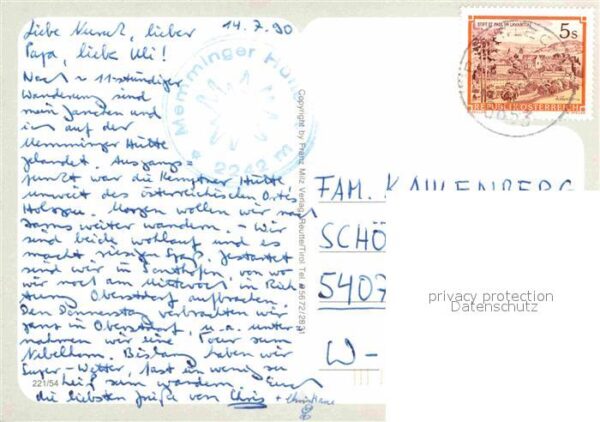 14.7.90
Liebe
Papa, liebe Uli!
Nach ~ 11-stündiger
Wanderung sind
mein und
ich auf der
Memminger Hütte
gelandet. Ausgangs=
punkt war die Kemptner Hütte
unweit des österreichischen Ortes
Holzgau. Morgen wollen wir nach
Zams weiter wandern. - Wir
sind beide wohlauf und es
macht riesigen Spaß. Gestartet
sind wir in Sonthofen, von wo
wir noch am Mittwoch in Rich=
tung Oberstdorf aufbrachen.
Den Donnerstag verbrachten wir
ganz in Oberstdorf, u.a. unter=
nahmen wir eine Tour zum
Nebelhorn. Bislang haben wir
Super-Wetter, fast ein wenig zu
heiß zum wandern. Euch
die liebsten Grüße von Chris + Christiane
221/54
Memminger Hütte
2242 m
Copyright by Franz Milz Verlag, Reutte/Tirol Tel. 05672/2831
STIFT ST. PAUL IM LAVANTTAL
5s
REPUBLIK ÖSTERREICH
6653
FAM. KAHLENBERG
SCHÖ
5407
W-
privacy protection
Datenschutz